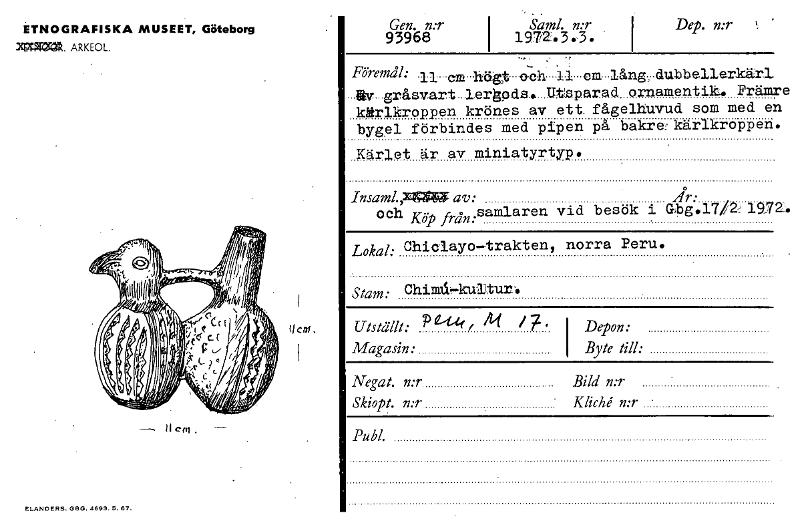 ETNOGRAFISKA MUSEET, Göteborg
ARKEOL.
Gen. n:r
93968
Saml. n:r
1972.3.3.
Dep. n:r
Föremål: 11 cm högt och 11 cm lång dubbellerkärl
av gråsvart lergods. Utsparad ornamentik. Främre
kärlkroppen krönes av ett fågelhuvud som med en
bygel förbindes med pipen på bakre kärlkroppen.
Kärlet är av miniatyrtyp.
Insaml., av: År:
och Köp från: samlaren vid besök i Gbg.17/2 1972.
Lokal: Chiclayo-trakten, norra Peru.
Stam: Chimú-kultur.
Utställt: Peru, M 17.
Depon:
Magasin:
Byte till:
Negat. n:r
Bild n:r
Skiopt. n:r
Kliché n:r
Publ.
11 cm.
11 cm.
ELANDERS, GBG, 4693. 5. 67.